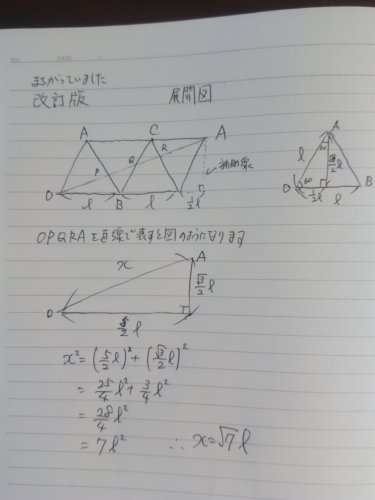 No.
DATE
まちがっていました
改訂版
展開図
A C A
R
Q
P
補助線
O l B l 1/2 l
A
30
l √3/2 l
60
O 1/2 l B
l
OPQRAを直線で表すと図のようになります
x A
√3/2 l
O
5/2 l
x² = (5/2 l)² + (√3/2 l)²
= 25/4 l² + 3/4 l²
= 28/4 l²
= 7l² ∴ x=√7 l